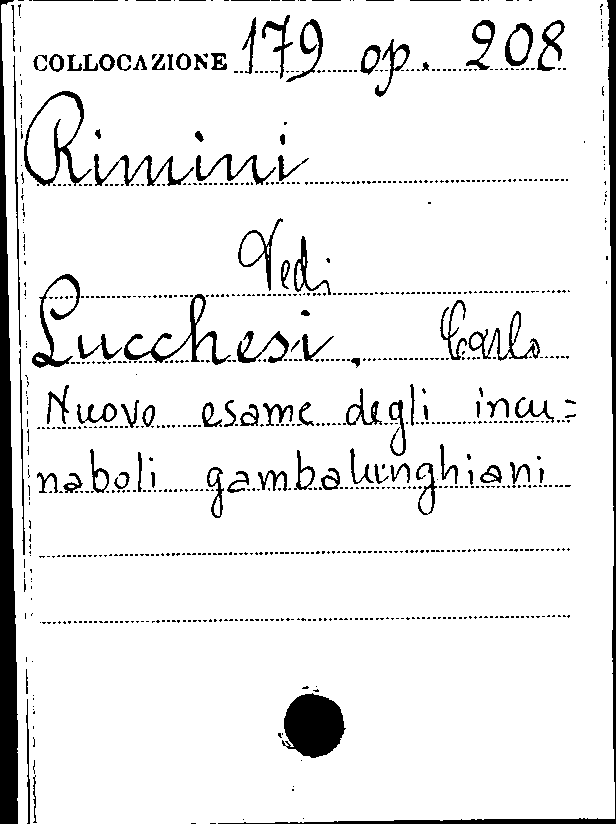 COLLOCAZIONE 179 op. 208
Rimini
Vedi
Lucchesi, Carlo
Nuovo esame degli incu=
naboli gambalunghiani